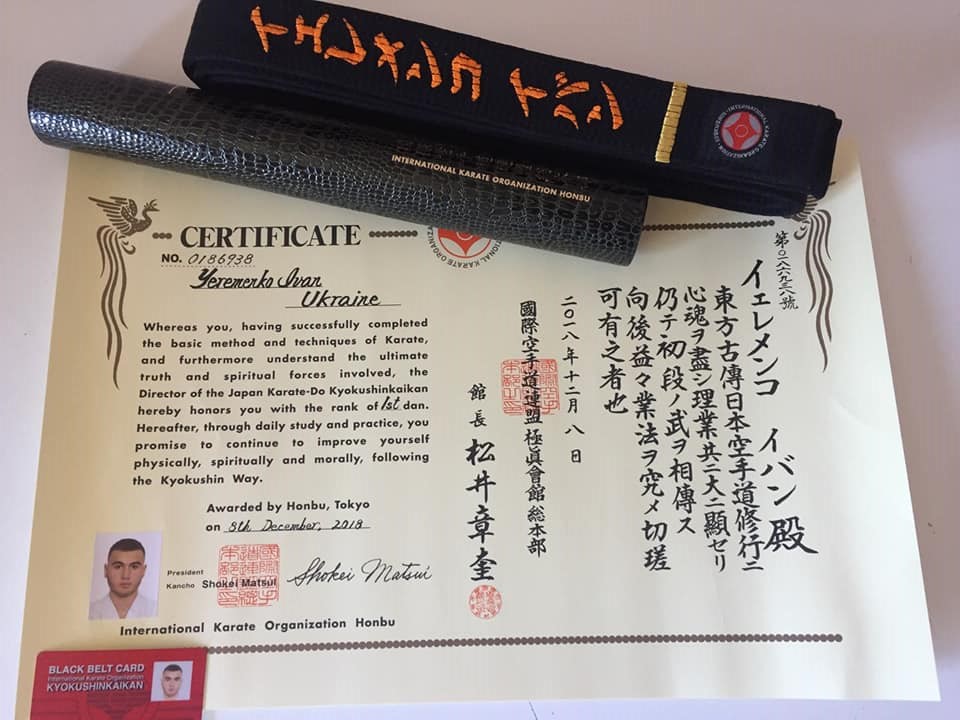 イエレメンコ イバン
INTERNATIONAL KARATE ORGANIZATION
INTERNATIONAL KARATE ORGANIZATION HONBU
CERTIFICATE
NO. 0186938
Yeremenko Ivan
Ukraine
Whereas you, having successfully completed
the basic method and techniques of Karate,
and furthermore understand the ultimate
truth and spiritual forces involved, the
Director of the Japan Karate-Do Kyokushinkaikan
hereby honors you with the rank of 1st dan.
Hereafter, through daily study and practice, you
promise to continue to improve yourself
physically, spiritually and morally, following
the Kyokushin Way.
Awarded by Honbu, Tokyo
on 8th December, 2018
President
Kancho Shokei Matsui Shokei Matsui
International Karate Organization Honbu
第〇一八六九三八號
イェレメンコ イバン殿
東方古傳日本空手道修行ニ
心魂ヲ盡シ理業共ニ大ニ顯セリ
仍テ初段ノ武ヲ相傳ス
向後益々業法ヲ究メ切瑳
可有之者也
二〇一八年十二月八日
國際空手道連盟 極眞會館 総本部
館長 松井章奎
BLACK BELT CARD
International Karate Organization
KYOKUSHINKAIKAN